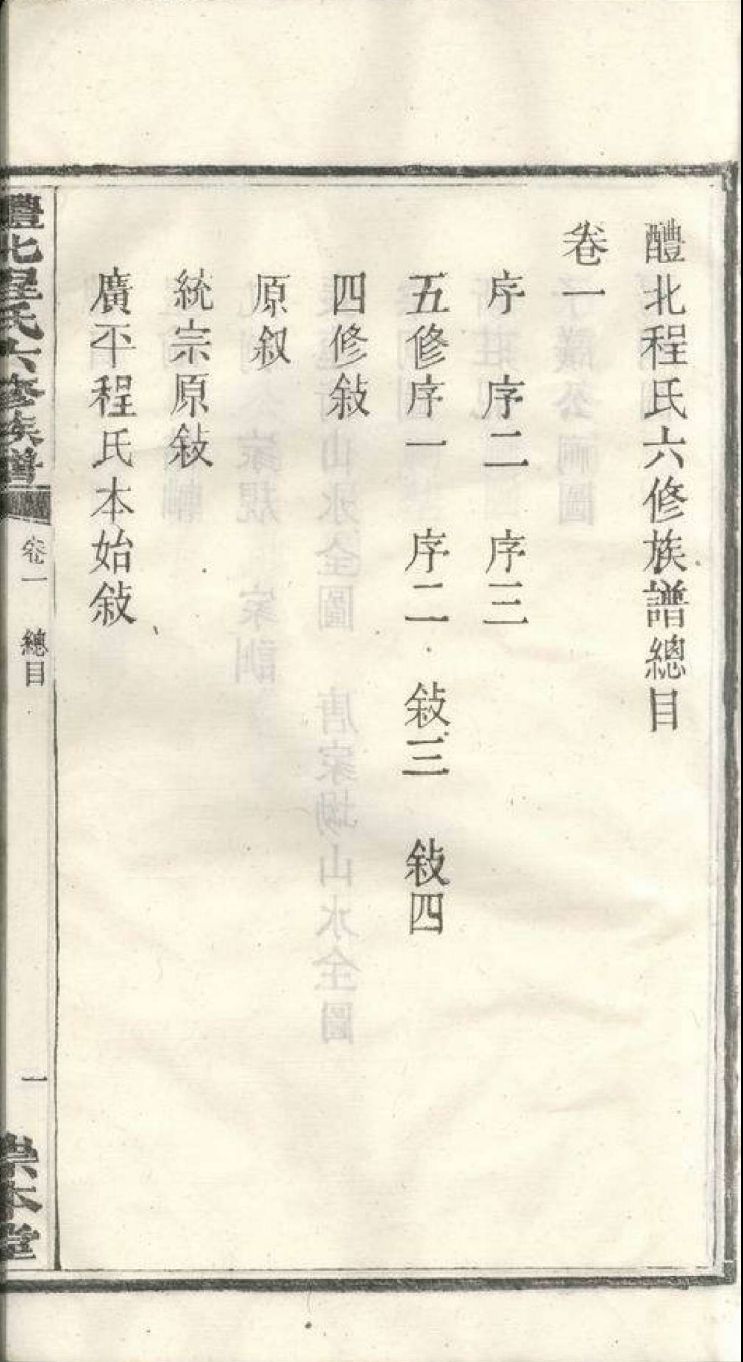 醴北程氏六修族譜總目
卷一
序 序二 序三
五修序一 序二 敍三 敍四
四修敍
原叙
統宗原敍
廣平程氏本始敍
醴北程氏六修族譜 卷一 總目 一 崇本堂